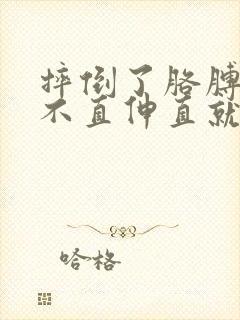 摔倒了胳膊
不直伸直就
哈格